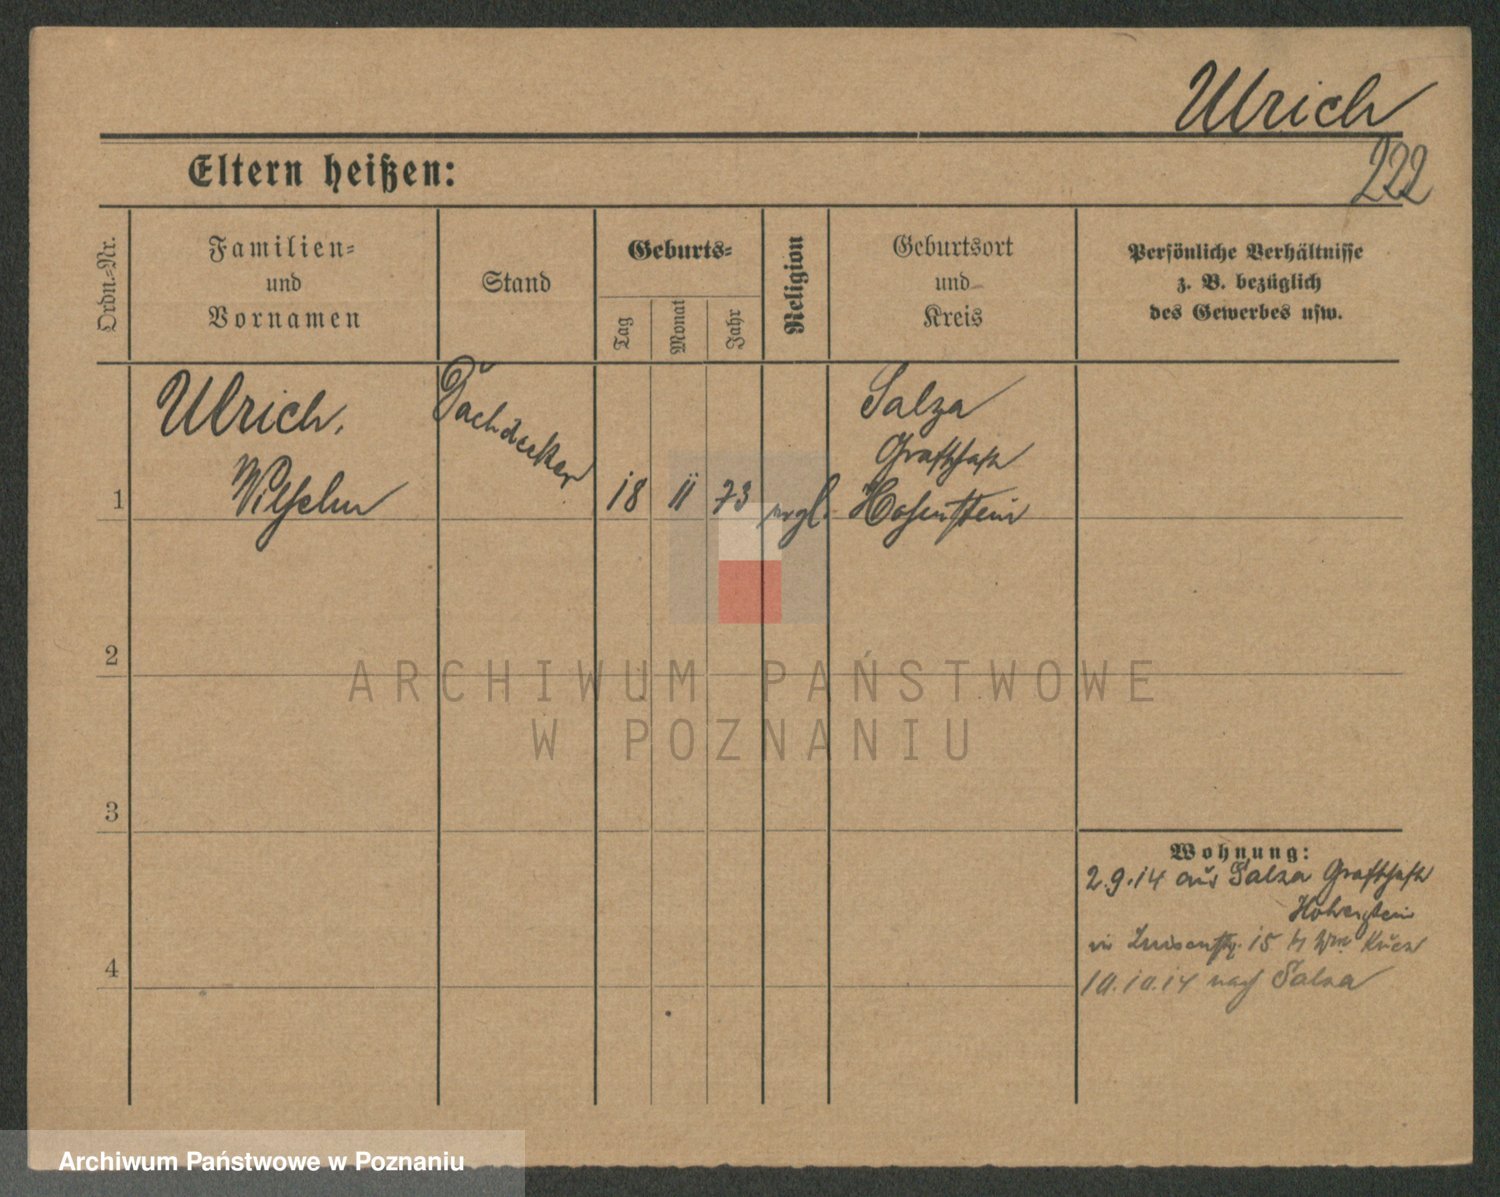 Ulrich
222
Eltern heißen:
Ordn.-Nr.
Familien-
und
Vornamen
Stand
Geburts-
Tag
Monat
Jahr
Religion
Geburtsort
und
Kreis
Persönliche Verhältnisse
z. B. bezüglich
des Gewerbes usw.
1
Ulrich,
Wilhelm
Dachdecker
18
11
73
evgl.
Salza
Grafschaft
Hohenstein
2
3
4
Wohnung:
2.9.14 aus Salza Grafschaft
Hohenstein
in Luisenstr. 15
10.10.14 nach Salza
ARCHIWUM PAŃSTWOWE
W POZNANIU
Archiwum Państwowe w Poznaniu